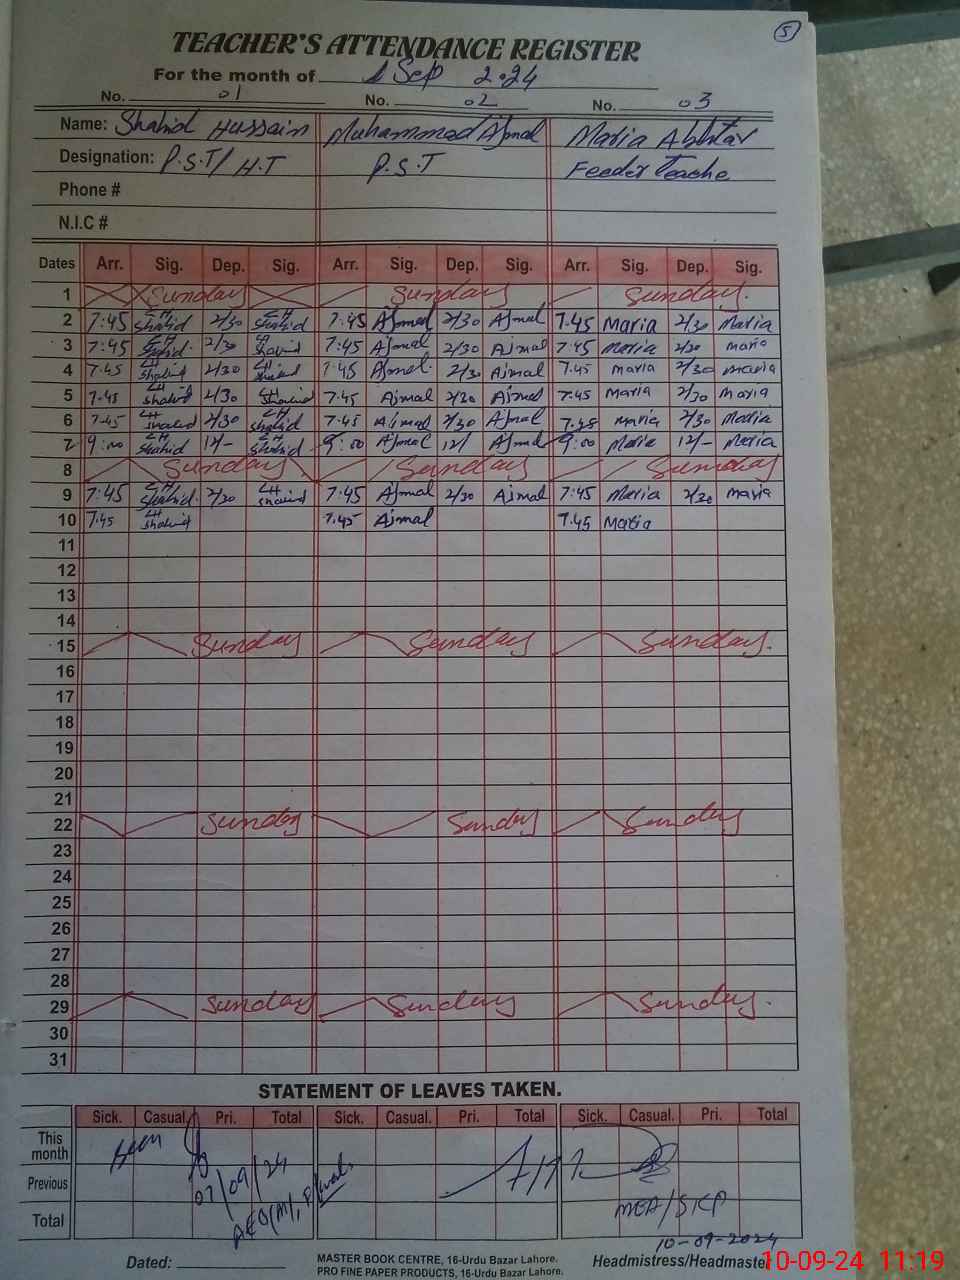 5
TEACHER'S ATTENDANCE REGISTER
For the month of Sep 2.24
No. 01 No. 02 No. 03
Name: Shahid Hussain Muhammad Ajmal Maria Akhtar
Designation: P.S.T/ H.T P.S.T Feeder Teache
Phone #
N.I.C #
Dates Arr. Sig. Dep. Sig. Arr. Sig. Dep. Sig. Arr. Sig. Dep. Sig.
1 Sunday Sunday Sunday.
2 7:45 Shahid 2/30 Shahid 7:45 Ajmal 2/30 Ajmal 7.45 Maria 2/30 Maria
3 7:45 Shahid 2/30 Shahid 7:45 Ajmal 2/30 Ajmal 7:45 Maria 2/30 Maria
4 7.45 Shahid 2/30 Shahid 7:45 Ajmal 2/30 Ajmal 7.45 Maria 2/30 Maria
5 7.45 Shahid 2/30 Shahid 7.45 Ajmal 2/30 Ajmal 7.45 Maria 2/30 Maria
6 7.45 Shahid 2/30 Shahid 7.45 Ajmal 2/30 Ajmal Maria 2/30 Maria
7 9:00 Shahid 12/- Shahid 9:00 Ajmal 12/ Ajmal 9:00 Maria 12/- Maria
8 Sunday Sunday Sunday
9 7:45 Shahid 2/30 Shahid 7:45 Ajmal 2/30 Ajmal 7:45 Maria 2/30 Maria
10 7.45 Shahid 7.45 Ajmal 7.45 Maria
11
12
13
14
15 Sunday Sunday Sunday.
16
17
18
19
20
21
22 Sunday Sunday Sunday
23
24
25
26
27
28
29 Sunday Sunday Sunday.
30
31
STATEMENT OF LEAVES TAKEN.
Sick. Casual. Pri. Total Sick. Casual. Pri. Total Sick. Casual. Pri. Total
This month Seen
Previous 07/09/24
Total AEO(M), MEA/SKP
10-09-2024
Dated: MASTER BOOK CENTRE, 16-Urdu Bazar Lahore. Headmistress/Headmaster
PRO FINE PAPER PRODUCTS, 16-Urdu Bazar Lahore.
10-09-24 11:19